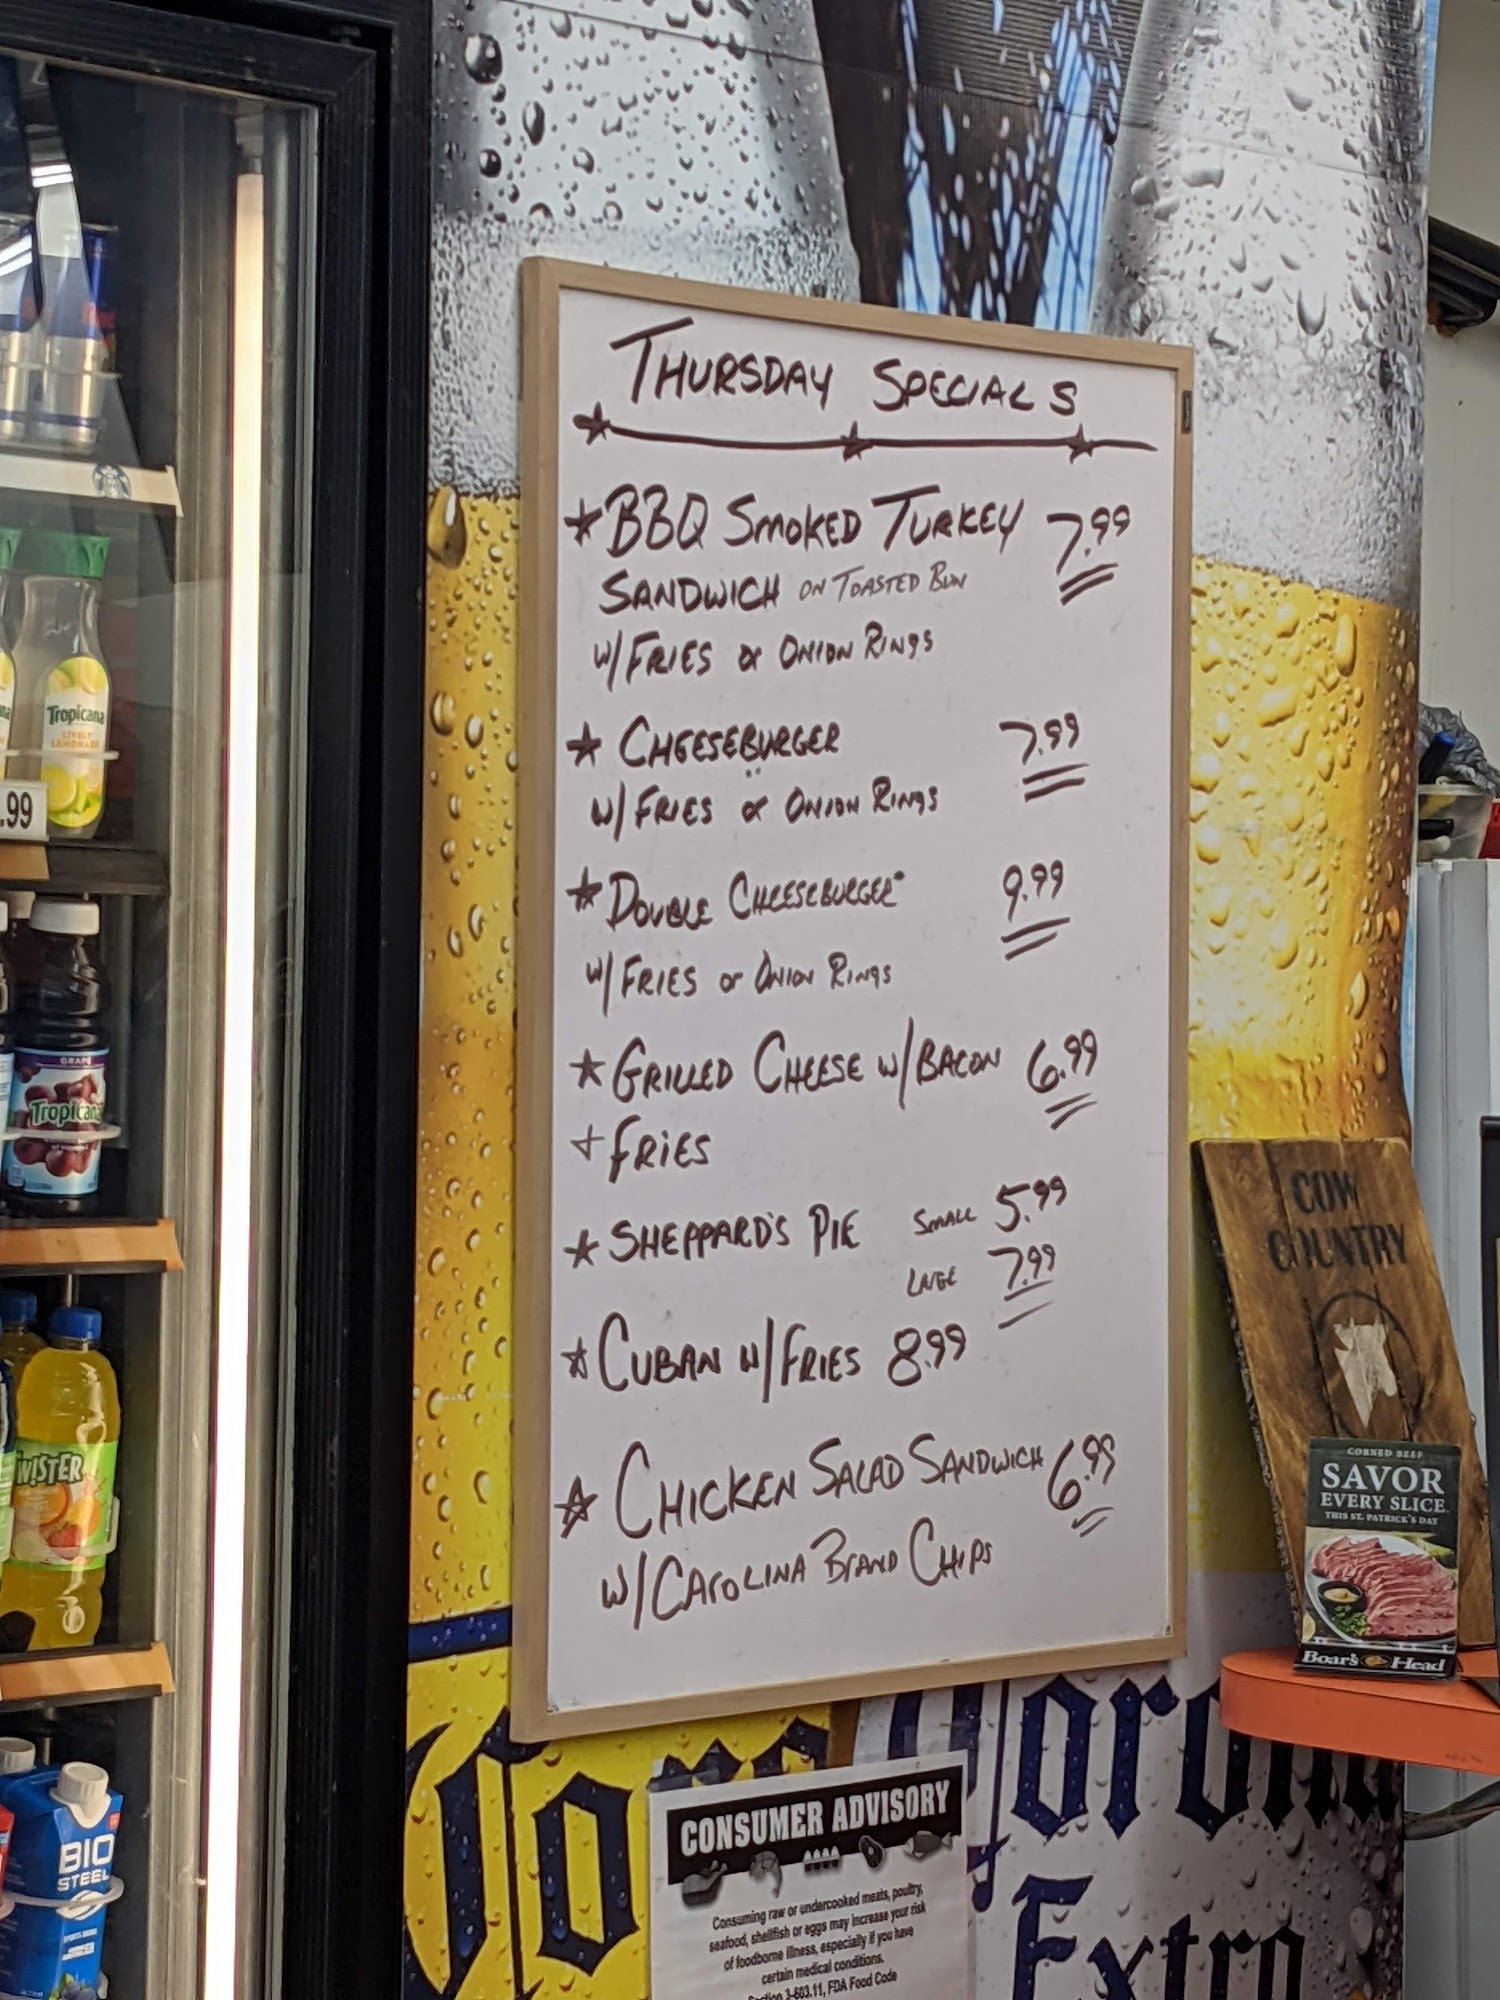 THURSDAY SPECIALS
BBQ SMOKED TURKEY 7.99
SANDWICH ON TOASTED BUN
W/FRIES or ONION RINGS
CHEESEBURGER 7.99
W/FRIES or ONION RINGS
DOUBLE CHEESEBURGER 9.99
W/FRIES or ONION RINGS
GRILLED CHEESE W/BACON 6.99
+ FRIES
SHEPPARD'S PIE SMALL 5.99
LARGE 7.99
CUBAN W/FRIES 8.99
CHICKEN SALAD SANDWICH 6.99
W/CAROLINA BRAND CHIPS
Tropicana
LIVELY
LEMONADE
.99
GRAPE
Tropicana
WISTER
BIO
STEEL
COW
COUNTRY
CORNED BEEF
SAVOR
EVERY SLICE
THIS ST. PATRICK'S DAY
Boar's Head
Corona
Extra
CONSUMER ADVISORY
Consuming raw or undercooked meats, poultry,
seafood, shellfish or eggs may increase your risk
of foodborne illness, especially if you have
certain medical conditions.
Section 3-603.11, FDA Food Code